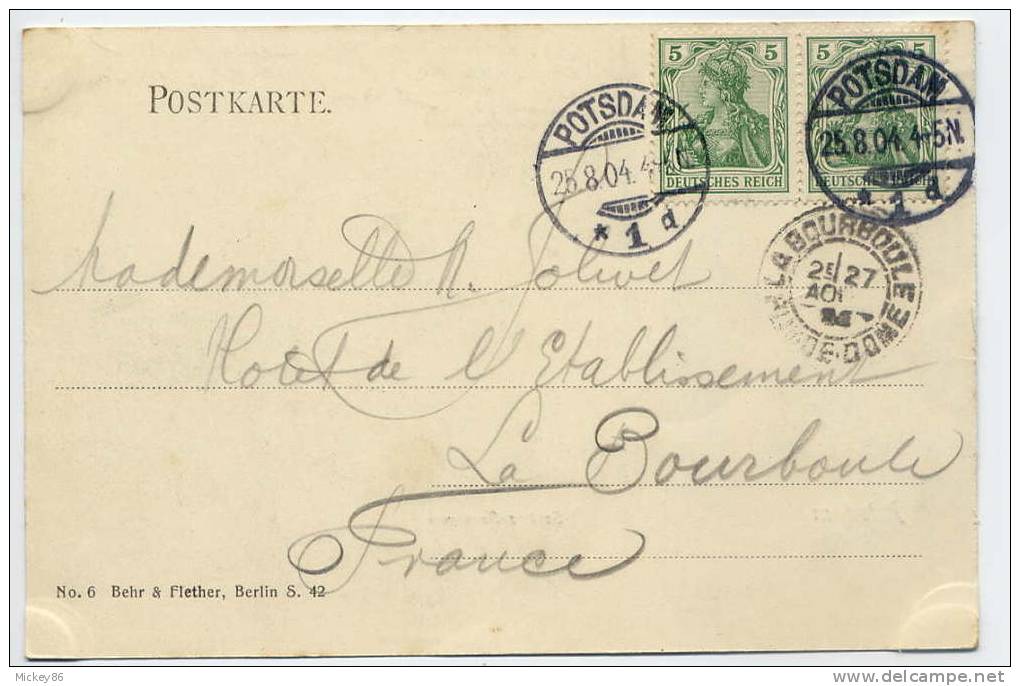 5 5 5 5
POSTKARTE.
POTSDAM
25.8.04. 4-5N.
* 1 d
POTSDAM
25.8.04. 4-5N.
* 1 d
DEUTSCHES REICH
DEUTSCHES REICH
LA BOURBOULE
27
AOU
PUY-DE-DOME
Mademoiselle A. Jolivet
Hotel de l'Etablissement
La Bourboule
France
No. 6 Behr & Flether, Berlin S. 42
Mickey86
www.delcampe.net